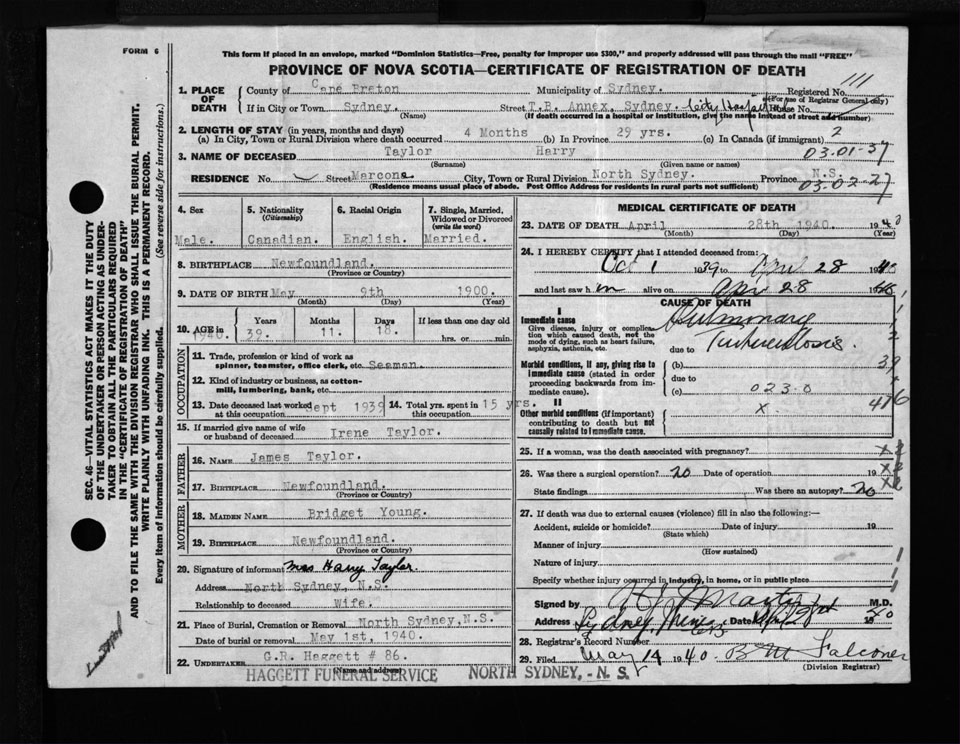 FORM 6
This form if placed in an envelope, marked "Dominion Statistics—Free, penalty for improper use $300," and properly addressed will pass through the mail "FREE"
PROVINCE OF NOVA SCOTIA—CERTIFICATE OF REGISTRATION OF DEATH
111
1. PLACE OF DEATH
County of Cape Breton Municipality of Sydney. Registered No.
(For use of Registrar General only)
If in City or Town Sydney. Street T.B. Annex, Sydney. City Hospital House No.
(Name) (If death occurred in a hospital or institution, give the name instead of street and number)
2. LENGTH OF STAY (in years, months and days)
(a) In City, Town or Rural Division where death occurred 4 Months (b) In Province 29 yrs. (c) In Canada (if immigrant) 2
3. NAME OF DECEASED Taylor Harry 03-01-37
(Surname) (Given name or names)
RESIDENCE No. Street Marcona City, Town or Rural Division North Sydney. Province N.S.
(Residence means usual place of abode. Post Office Address for residents in rural parts not sufficient) 03-02-27
4. Sex
Male.
5. Nationality (Citizenship)
Canadian.
6. Racial Origin
English.
7. Single, Married, Widowed or Divorced (write the word)
Married.
8. BIRTHPLACE Newfoundland.
(Province or Country)
9. DATE OF BIRTH May 9th 1900.
(Month) (Day) (Year)
10. AGE in Years Months Days If less than one day old
1940. 39. 11. 18. hrs. or min.
OCCUPATION
11. Trade, profession or kind of work as spinner, teamster, office clerk, etc. Seaman.
12. Kind of industry or business, as cotton-mill, lumbering, bank, etc.
13. Date deceased last worked at this occupation Sept 1939
14. Total yrs. spent in this occupation 15 yrs.
15. If married give name of wife or husband of deceased Irene Taylor.
FATHER
16. NAME James Taylor.
17. BIRTHPLACE Newfoundland.
(Province or Country)
MOTHER
18. MAIDEN NAME Bridget Young.
19. BIRTHPLACE Newfoundland.
(Province or Country)
20. Signature of informant Mrs Harry Taylor
Address North Sydney, N.S.
Relationship to deceased Wife.
21. Place of Burial, Cremation or Removal North Sydney, N.S.
Date of burial or removal May 1st, 1940.
22. UNDERTAKER G.R. Haggett # 86.
(Name and address)
HAGGETT FUNERAL SERVICE NORTH SYDNEY, - N. S.
MEDICAL CERTIFICATE OF DEATH
23. DATE OF DEATH April 28th 1940. 194
(Month) (Day) (Year)
24. I HEREBY CERTIFY that I attended deceased from:
Oct 1 1939 to April 28 1940
and last saw him alive on Apr 28 1940
CAUSE OF DEATH
I
Immediate cause
Give disease, injury or complication which caused death, not the mode of dying, such as heart failure, asphyxia, asthenia, etc.
Pulmonary
due to Tuberculosis.
Morbid conditions, if any, giving rise to immediate cause (stated in order proceeding backwards from immediate cause).
(b) 39
due to
(c) 023.0
II
Other morbid conditions (if important) contributing to death but not causally related to immediate cause.
x.
25. If a woman, was the death associated with pregnancy?
26. Was there a surgical operation? no Date of operation 19
State findings Was there an autopsy? no
27. If death was due to external causes (violence) fill in also the following:—
Accident, suicide or homicide? Date of injury 19
(State which)
Manner of injury
(How sustained)
Nature of injury
Specify whether injury occurred in industry, in home, or in public place
Signed by M.D.
Address Sydney Mines Date 19
28. Registrar's Record Number
29. Filed May 14 1940 B M Falconer
(Division Registrar)
SEC. 46—VITAL STATISTICS ACT MAKES IT THE DUTY OF THE UNDERTAKER OR PERSON ACTING AS UNDERTAKER TO OBTAIN ALL THE PARTICULARS REQUIRED IN THE "CERTIFICATE OF REGISTRATION OF DEATH" AND TO FILE THE SAME WITH THE DIVISION REGISTRAR WHO SHALL ISSUE THE BURIAL PERMIT.
WRITE PLAINLY WITH UNFADING INK. THIS IS A PERMANENT RECORD.
Every item of information should be carefully supplied. (See reverse side for instructions.)